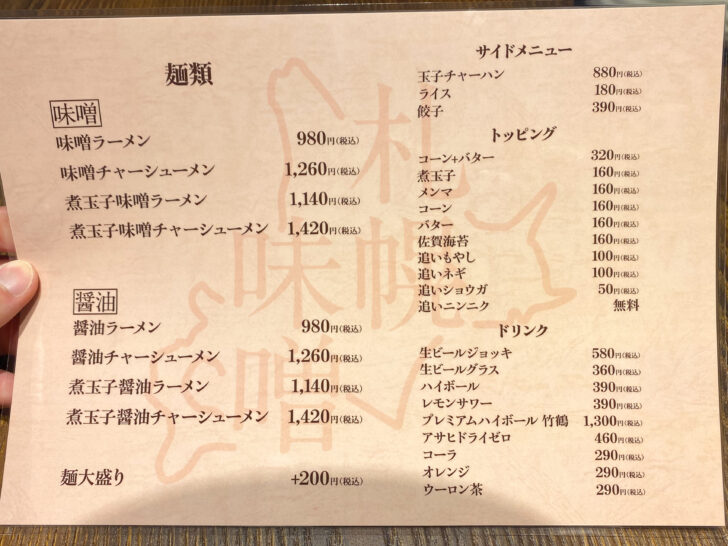 麺類
味噌
味噌ラーメン 980円(税込)
味噌チャーシューメン 1,260円(税込)
煮玉子味噌ラーメン 1,140円(税込)
煮玉子味噌チャーシューメン 1,420円(税込)
醤油
醤油ラーメン 980円(税込)
醤油チャーシューメン 1,260円(税込)
煮玉子醤油ラーメン 1,140円(税込)
煮玉子醤油チャーシューメン 1,420円(税込)
麺大盛り +200円(税込)
札幌
味噌
サイドメニュー
玉子チャーハン 880円(税込)
ライス 180円(税込)
餃子 390円(税込)
トッピング
コーン+バター 320円(税込)
煮玉子 160円(税込)
メンマ 160円(税込)
コーン 160円(税込)
バター 160円(税込)
佐賀海苔 160円(税込)
追いもやし 100円(税込)
追いネギ 100円(税込)
追いショウガ 50円(税込)
追いニンニク 無料
ドリンク
生ビールジョッキ 580円(税込)
生ビールグラス 360円(税込)
ハイボール 390円(税込)
レモンサワー 390円(税込)
プレミアムハイボール 竹鶴 1,300円(税込)
アサヒドライゼロ 460円(税込)
コーラ 290円(税込)
オレンジ 290円(税込)
ウーロン茶 290円(税込)